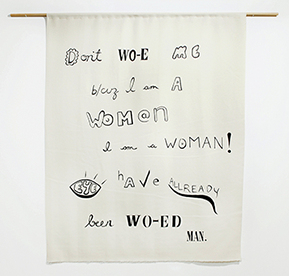 Don't WO-E ME
b/cuz I am A
WOM@N
I am a WOMAN!
EYE hAVe ALLREADY
been WO-ED
MAN.